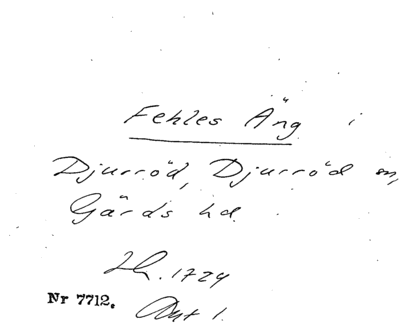 Fehles Äng i
Djurröd, Djurröd sn,
Gärds hd
Jh. 1724
Nr 7712. Akt 1.